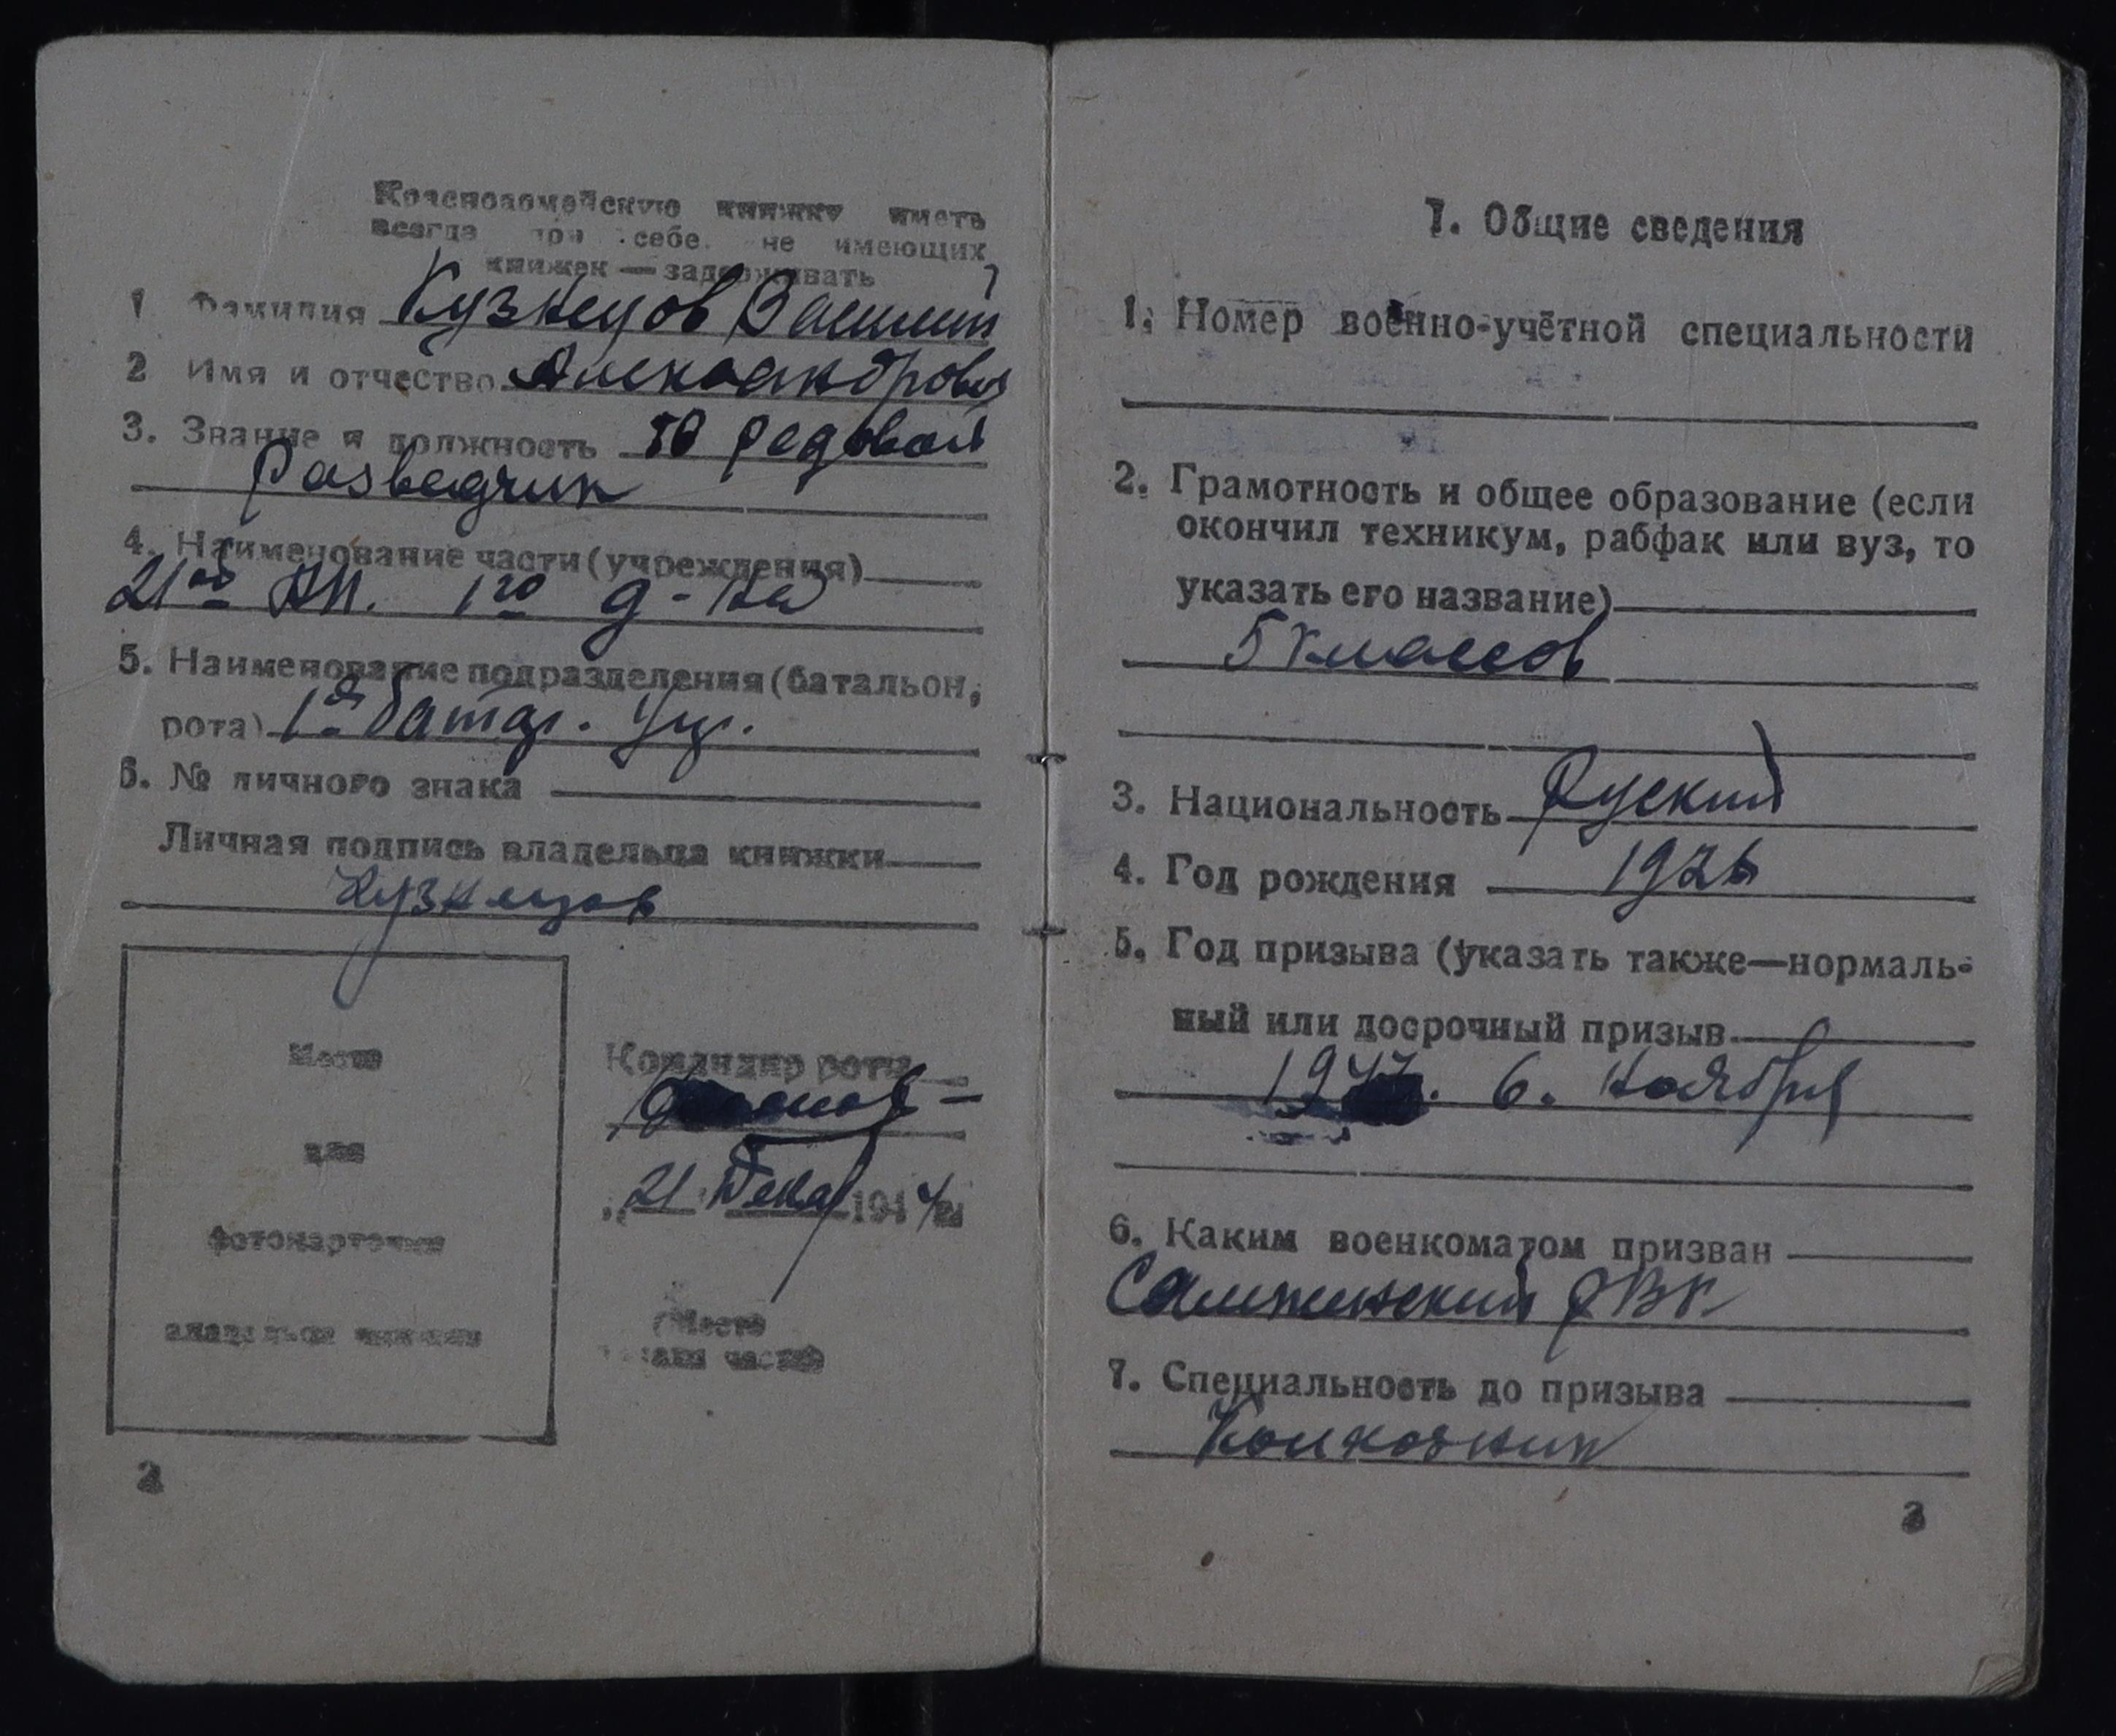 Красноармейскую книжку иметь
всегда при себе. не имеющих
книжек — задерживать
1 Фамилия Кузнецов Василий
2 Имя и отчество Александрович
3. Звание и должность редовой
Разведчик
4. Наименование части (учреждения)
21ой АП. 1го д-на
5. Наименование подразделения (батальон,
рота) 1я батар.
6. № личного знака
Личная подпись владельца книжки
Кузнецов
Место
для
фотокарточки
владельца книжки
Командир роты
„21 Декаб 1944
(Место
печати части)
2
I. Общие сведения
1. Номер военно-учётной специальности
2. Грамотность и общее образование (если
окончил техникум, рабфак или вуз, то
указать его название)
5 классов
3. Национальность Руский
4. Год рождения 1926
5. Год призыва (указать также—нормаль-
ный или досрочный призыв
6. Ноября
6. Каким военкоматом призван
РВК
7. Специальность до призыва
Колхозник
3